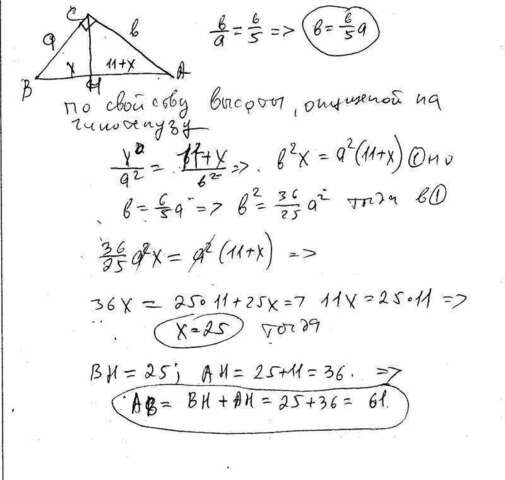 C
a b b/a = 6/5 => b = 6/5 a
x 11+x
B H A
по свойству высоты, опущенной на
гипотенузу
x/a² = 11+x/b² => b²x = a²(11+x) ① но
b = 6/5 a => b² = 36/25 a² тогда в ①
36/25 a²x = a²(11+x) =>
36x = 25·11+25x => 11x = 25·11 =>
x = 25 тогда
BH = 25; AH = 25+11 = 36. =>
AB = BH + AH = 25+36 = 61.